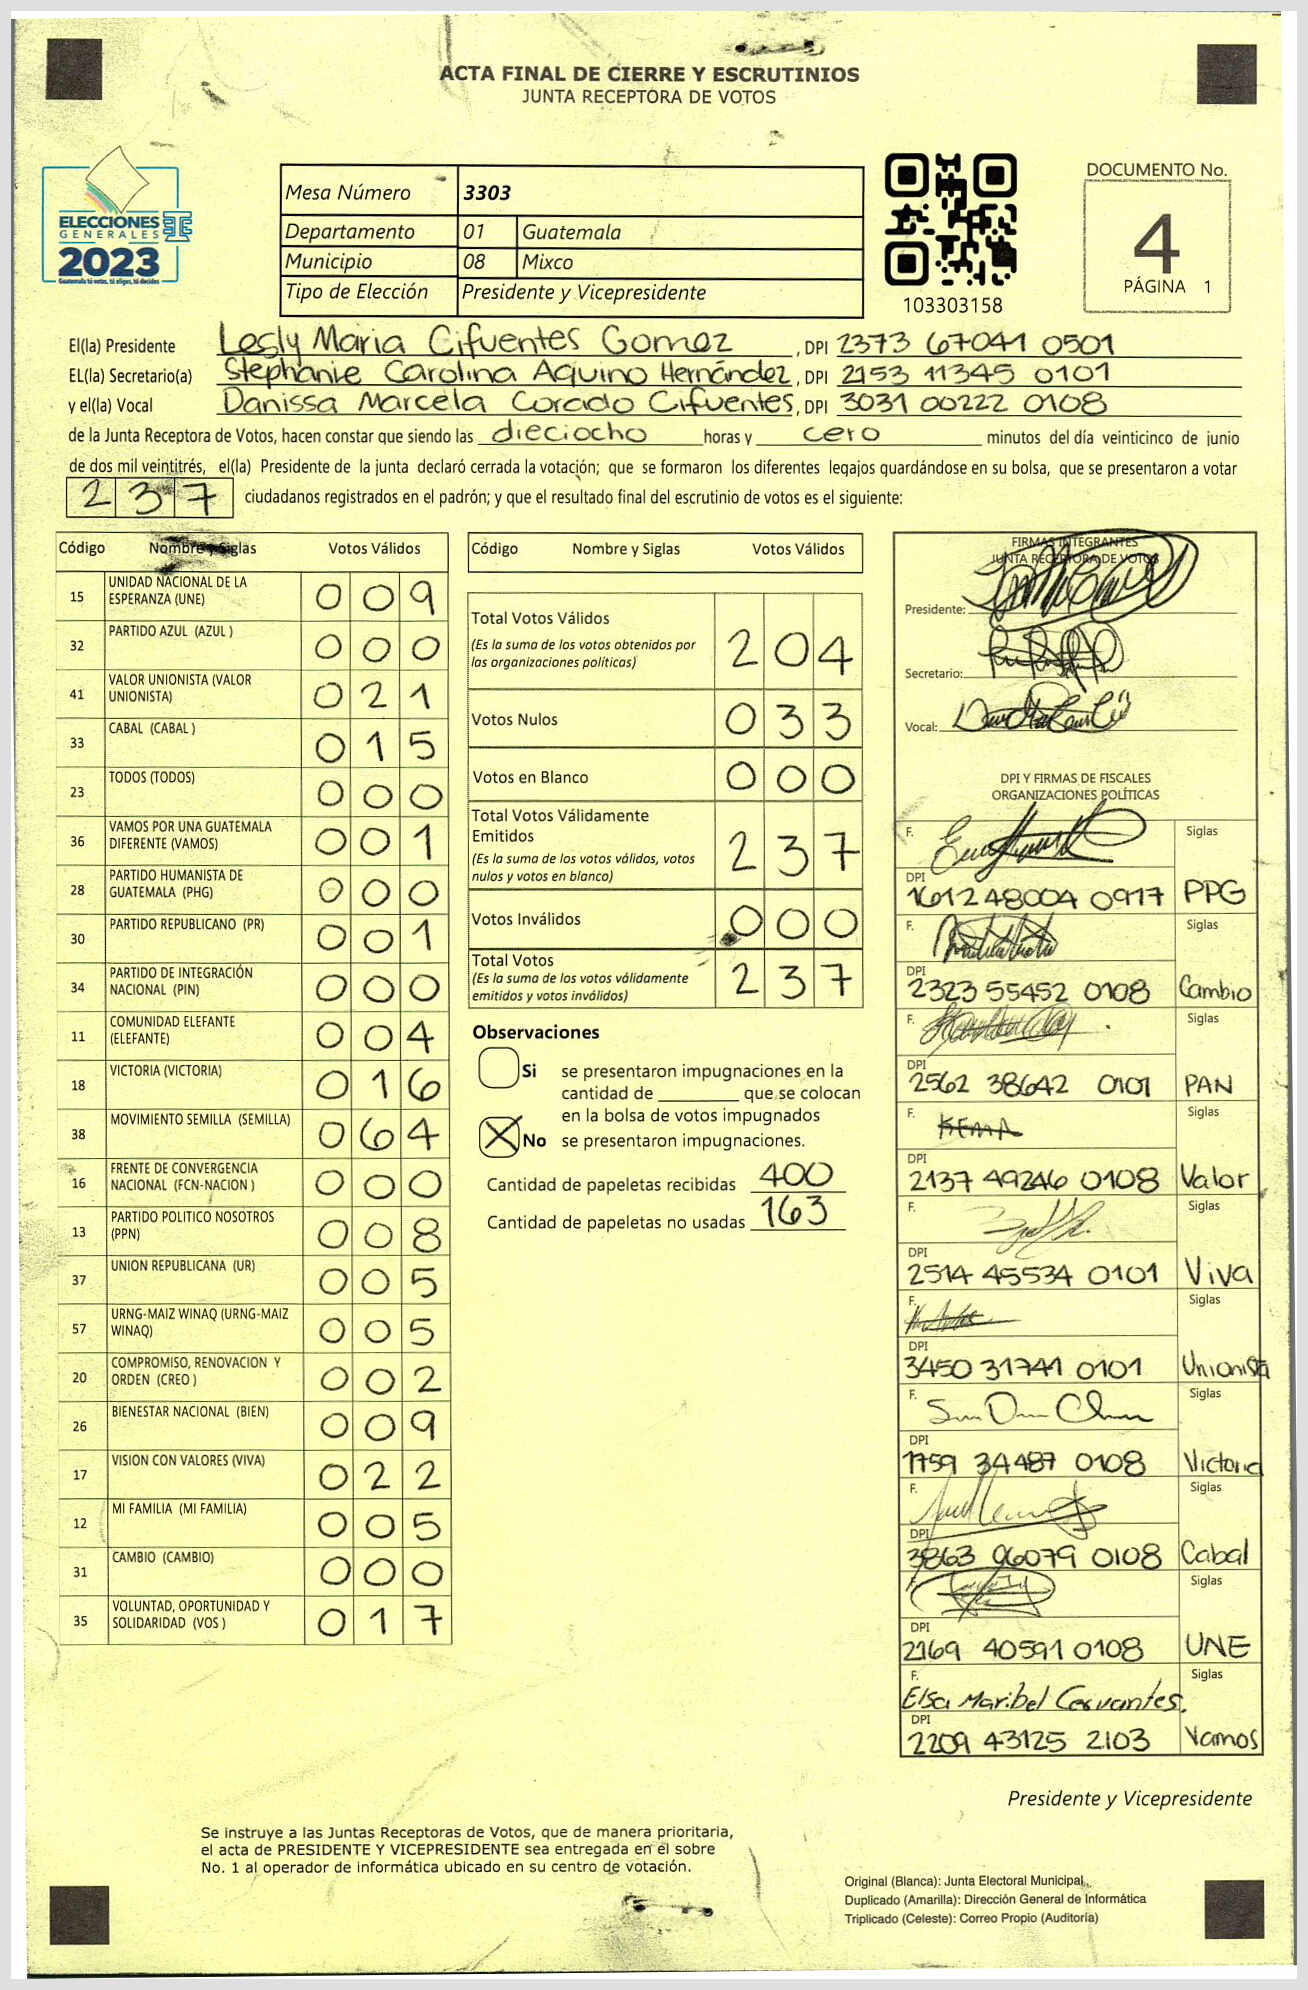 ACTA FINAL DE CIERRE Y ESCRUTINIOS
JUNTA RECEPTORA DE VOTOS
ELECCIONES
GENERALES
2023
Guatemala tú votas, tú eliges, tú decides
Mesa Número 3303
Departamento 01 Guatemala
Municipio 08 Mixco
Tipo de Elección Presidente y Vicepresidente
103303158
DOCUMENTO No.
4
PÁGINA 1
El(la) Presidente Lesly Maria Cifuentes Gomez, DPI 2373 67041 0501
EL(la) Secretario(a) Stephanie Carolina Aquino Hernández, DPI 2153 11345 0101
y el(la) Vocal Danissa Marcela Corado Cifuentes, DPI 3031 00222 0108
de la Junta Receptora de Votos, hacen constar que siendo las dieciocho horas y cero minutos del día veinticinco de junio
de dos mil veintitrés, el(la) Presidente de la junta declaró cerrada la votación; que se formaron los diferentes legajos guardándose en su bolsa, que se presentaron a votar
237 ciudadanos registrados en el padrón; y que el resultado final del escrutinio de votos es el siguiente:
Código Nombre y Siglas Votos Válidos
15 UNIDAD NACIONAL DE LA ESPERANZA (UNE) 009
32 PARTIDO AZUL (AZUL ) 000
41 VALOR UNIONISTA (VALOR UNIONISTA) 021
33 CABAL (CABAL ) 015
23 TODOS (TODOS) 000
36 VAMOS POR UNA GUATEMALA DIFERENTE (VAMOS) 001
28 PARTIDO HUMANISTA DE GUATEMALA (PHG) 000
30 PARTIDO REPUBLICANO (PR) 001
34 PARTIDO DE INTEGRACIÓN NACIONAL (PIN) 000
11 COMUNIDAD ELEFANTE (ELEFANTE) 004
18 VICTORIA (VICTORIA) 016
38 MOVIMIENTO SEMILLA (SEMILLA) 064
16 FRENTE DE CONVERGENCIA NACIONAL (FCN-NACION ) 000
13 PARTIDO POLITICO NOSOTROS (PPN) 008
37 UNION REPUBLICANA (UR) 005
57 URNG-MAIZ WINAQ (URNG-MAIZ WINAQ) 005
20 COMPROMISO, RENOVACION Y ORDEN (CREO ) 002
26 BIENESTAR NACIONAL (BIEN) 009
17 VISION CON VALORES (VIVA) 022
12 MI FAMILIA (MI FAMILIA) 005
31 CAMBIO (CAMBIO) 000
35 VOLUNTAD, OPORTUNIDAD Y SOLIDARIDAD (VOS ) 017
Código Nombre y Siglas Votos Válidos
Total Votos Válidos 204
(Es la suma de los votos obtenidos por
las organizaciones políticas)
Votos Nulos 033
Votos en Blanco 000
Total Votos Válidamente
Emitidos 237
(Es la suma de los votos válidos, votos
nulos y votos en blanco)
Votos Inválidos 000
Total Votos 237
(Es la suma de los votos válidamente
emitidos y votos inválidos)
Observaciones
Si se presentaron impugnaciones en la
cantidad de ________ que se colocan
en la bolsa de votos impugnados
No se presentaron impugnaciones.
Cantidad de papeletas recibidas 400
Cantidad de papeletas no usadas 163
FIRMAS INTEGRANTES
JUNTA RECEPTORA DE VOTOS
Presidente:
Secretario:
Vocal:
DPI Y FIRMAS DE FISCALES
ORGANIZACIONES POLÍTICAS
F. Siglas
DPI
1612 48004 0917 PPG
F. Siglas
DPI
2323 55452 0108 Cambio
F. Siglas
DPI
2562 38642 0101 PAN
F. Siglas
DPI
2137 49246 0108 Valor
F. Siglas
DPI
2514 45534 0101 Viva
F. Siglas
DPI
3450 31741 0101 Unionista
F. Siglas
DPI
1759 34487 0108 Victoria
F. Siglas
DPI
3863 96079 0108 Cabal
F. Siglas
DPI
2169 40591 0108 UNE
F. Siglas
Elsa Maribel Cervantes.
DPI
2209 43125 2103 Vamos
Presidente y Vicepresidente
Se instruye a las Juntas Receptoras de Votos, que de manera prioritaria,
el acta de PRESIDENTE Y VICEPRESIDENTE sea entregada en el sobre
No. 1 al operador de informática ubicado en su centro de votación.
Original (Blanca): Junta Electoral Municipal.
Duplicado (Amarilla): Dirección General de Informática
Triplicado (Celeste): Correo Propio (Auditoría)